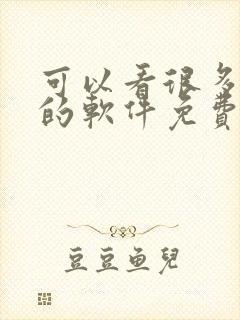 可以看很多
的軟件免費
豆豆鱼兒